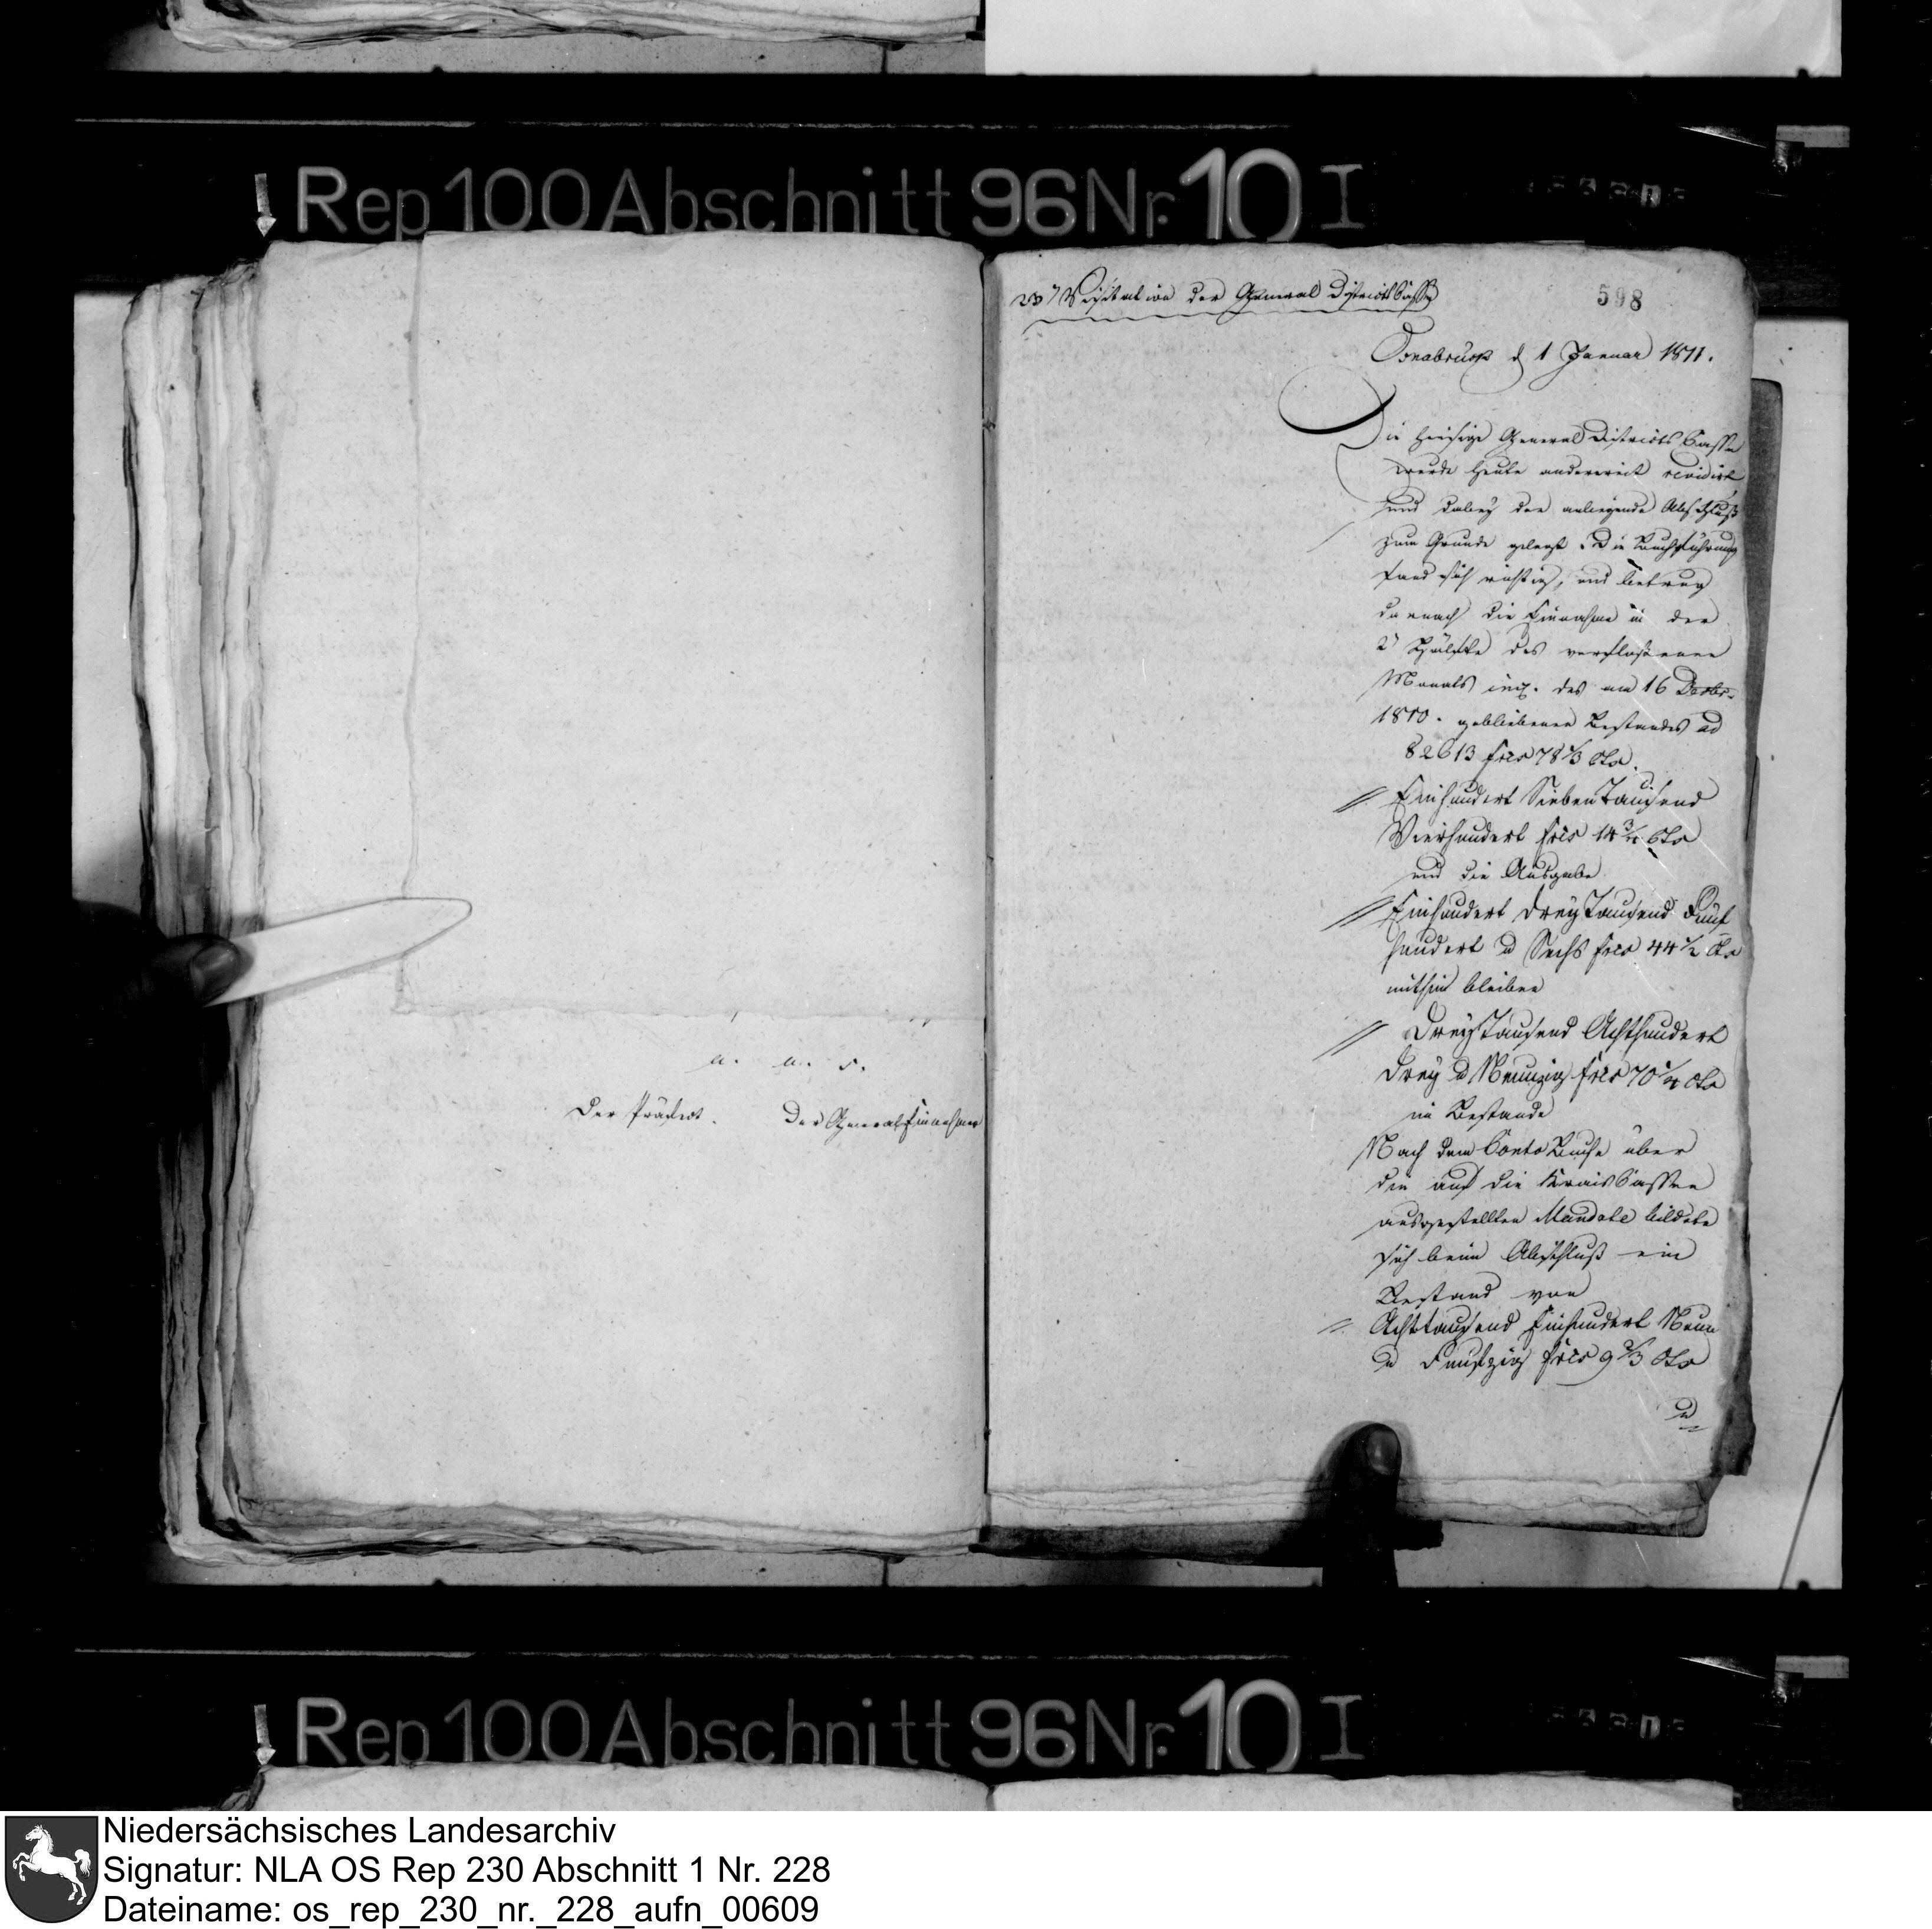 Rep 100 Abschnitt 96 Nr. 10 I
u. u. s.
Der Präfect. Der General Einnehmer
Visitation der General Districts Casse
598
Osnabrück d 1 Januar 1811.
Die hiesige General Districts Casse
wurde heute anderweit revidirt
und dabey der anliegende Abschluß
zum Grunde gelegt. Die Buchführung
fand sich richtig, und betrug
darnach die Einnahme in der
2 Hälfte des verflossenen
Monats incl. des am 16 Decbr.
1810. gebliebenen Bestandes ad
82613 frcs 78 1/3 Cts.
Einhundert Sieben Tausend
Vierhundert frcs 14 3/4 Cts
und die Ausgabe
Einhundert drey Tausend Fünf
hundert u Sechs frcs 44 1/2 Cts
mithin bleiben
Drey Tausend Achthundert
drey u Neunzig frcs 70 1/4 Cts
im Bestande
Nach dem Conto Buche über
die auf die Kreis Cassen
ausgestellten Mandate bildete
sich beim Abschluß ein
Bestand von
Achttausend Einhundert Neun
u Funfzig frcs 9 2/3 Cts
u
Rep 100 Abschnitt 96 Nr. 10 I
Niedersächsisches Landesarchiv
Signatur: NLA OS Rep 230 Abschnitt 1 Nr. 228
Dateiname: os_rep_230_nr._228_aufn_00609